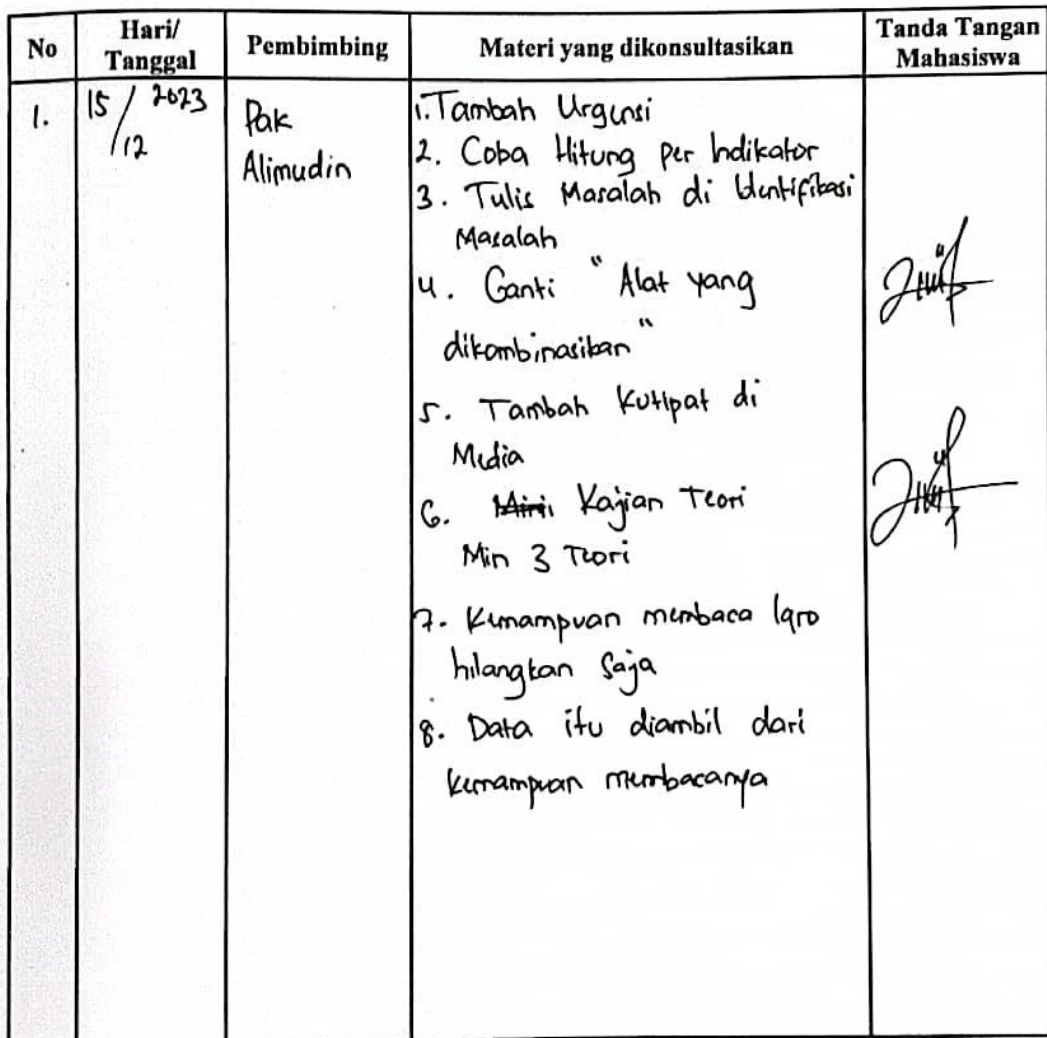 No Hari/ Tanggal Pembimbing Materi yang dikonsultasikan Tanda Tangan Mahasiswa
1. 15/12 2023 Pak Alimudin
1. Tambah Urgensi
2. Coba Hitung Per Indikator
3. Tulis Masalah di Identifikasi
Masalah
4. Ganti "Alat yang
dikombinasikan"
5. Tambah Kutipat di
Media
6. Kajian Teori
Min 3 Teori
7. Kemampuan membaca Iqro
hilangkan Saja
8. Data itu diambil dari
kemampuan membacanya